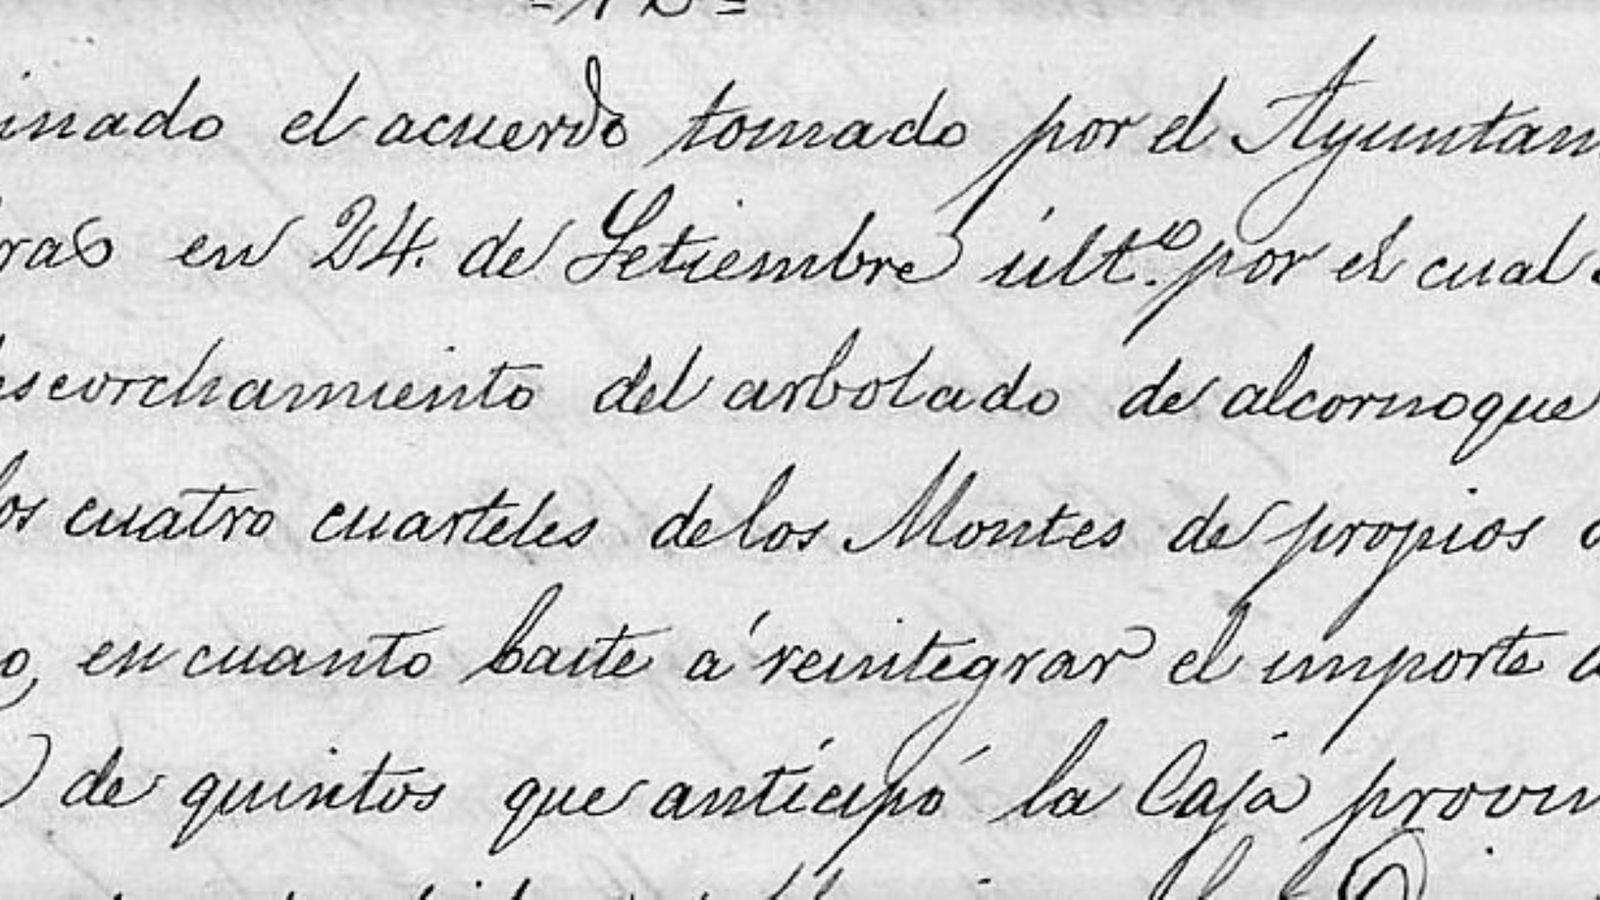 inado el acuerdo tomado por el Ayuntam
ras en 24. de Setiembre últ.º por el cual
escorchamiento del arbolado de alcornoque
los cuatro cuarteles de los Montes de propios
o, en cuanto baste á reintegrar el importe
de quintos que anticipó la Caja provin